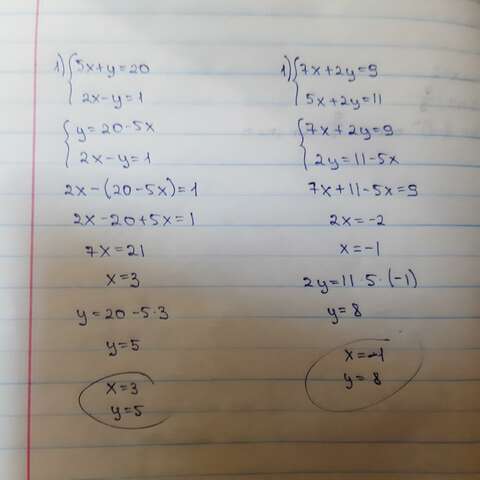 1) { 5x+y=20
2x-y=1
{ y=20-5x
2x-y=1
2x-(20-5x)=1
2x-20+5x=1
7x=21
x=3
y=20-5·3
y=5
x=3
y=5
1) { 7x+2y=9
5x+2y=11
{ 7x+2y=9
2y=11-5x
7x+11-5x=9
2x=-2
x=-1
2y=11·5·(-1)
y=8
x=-1
y=8